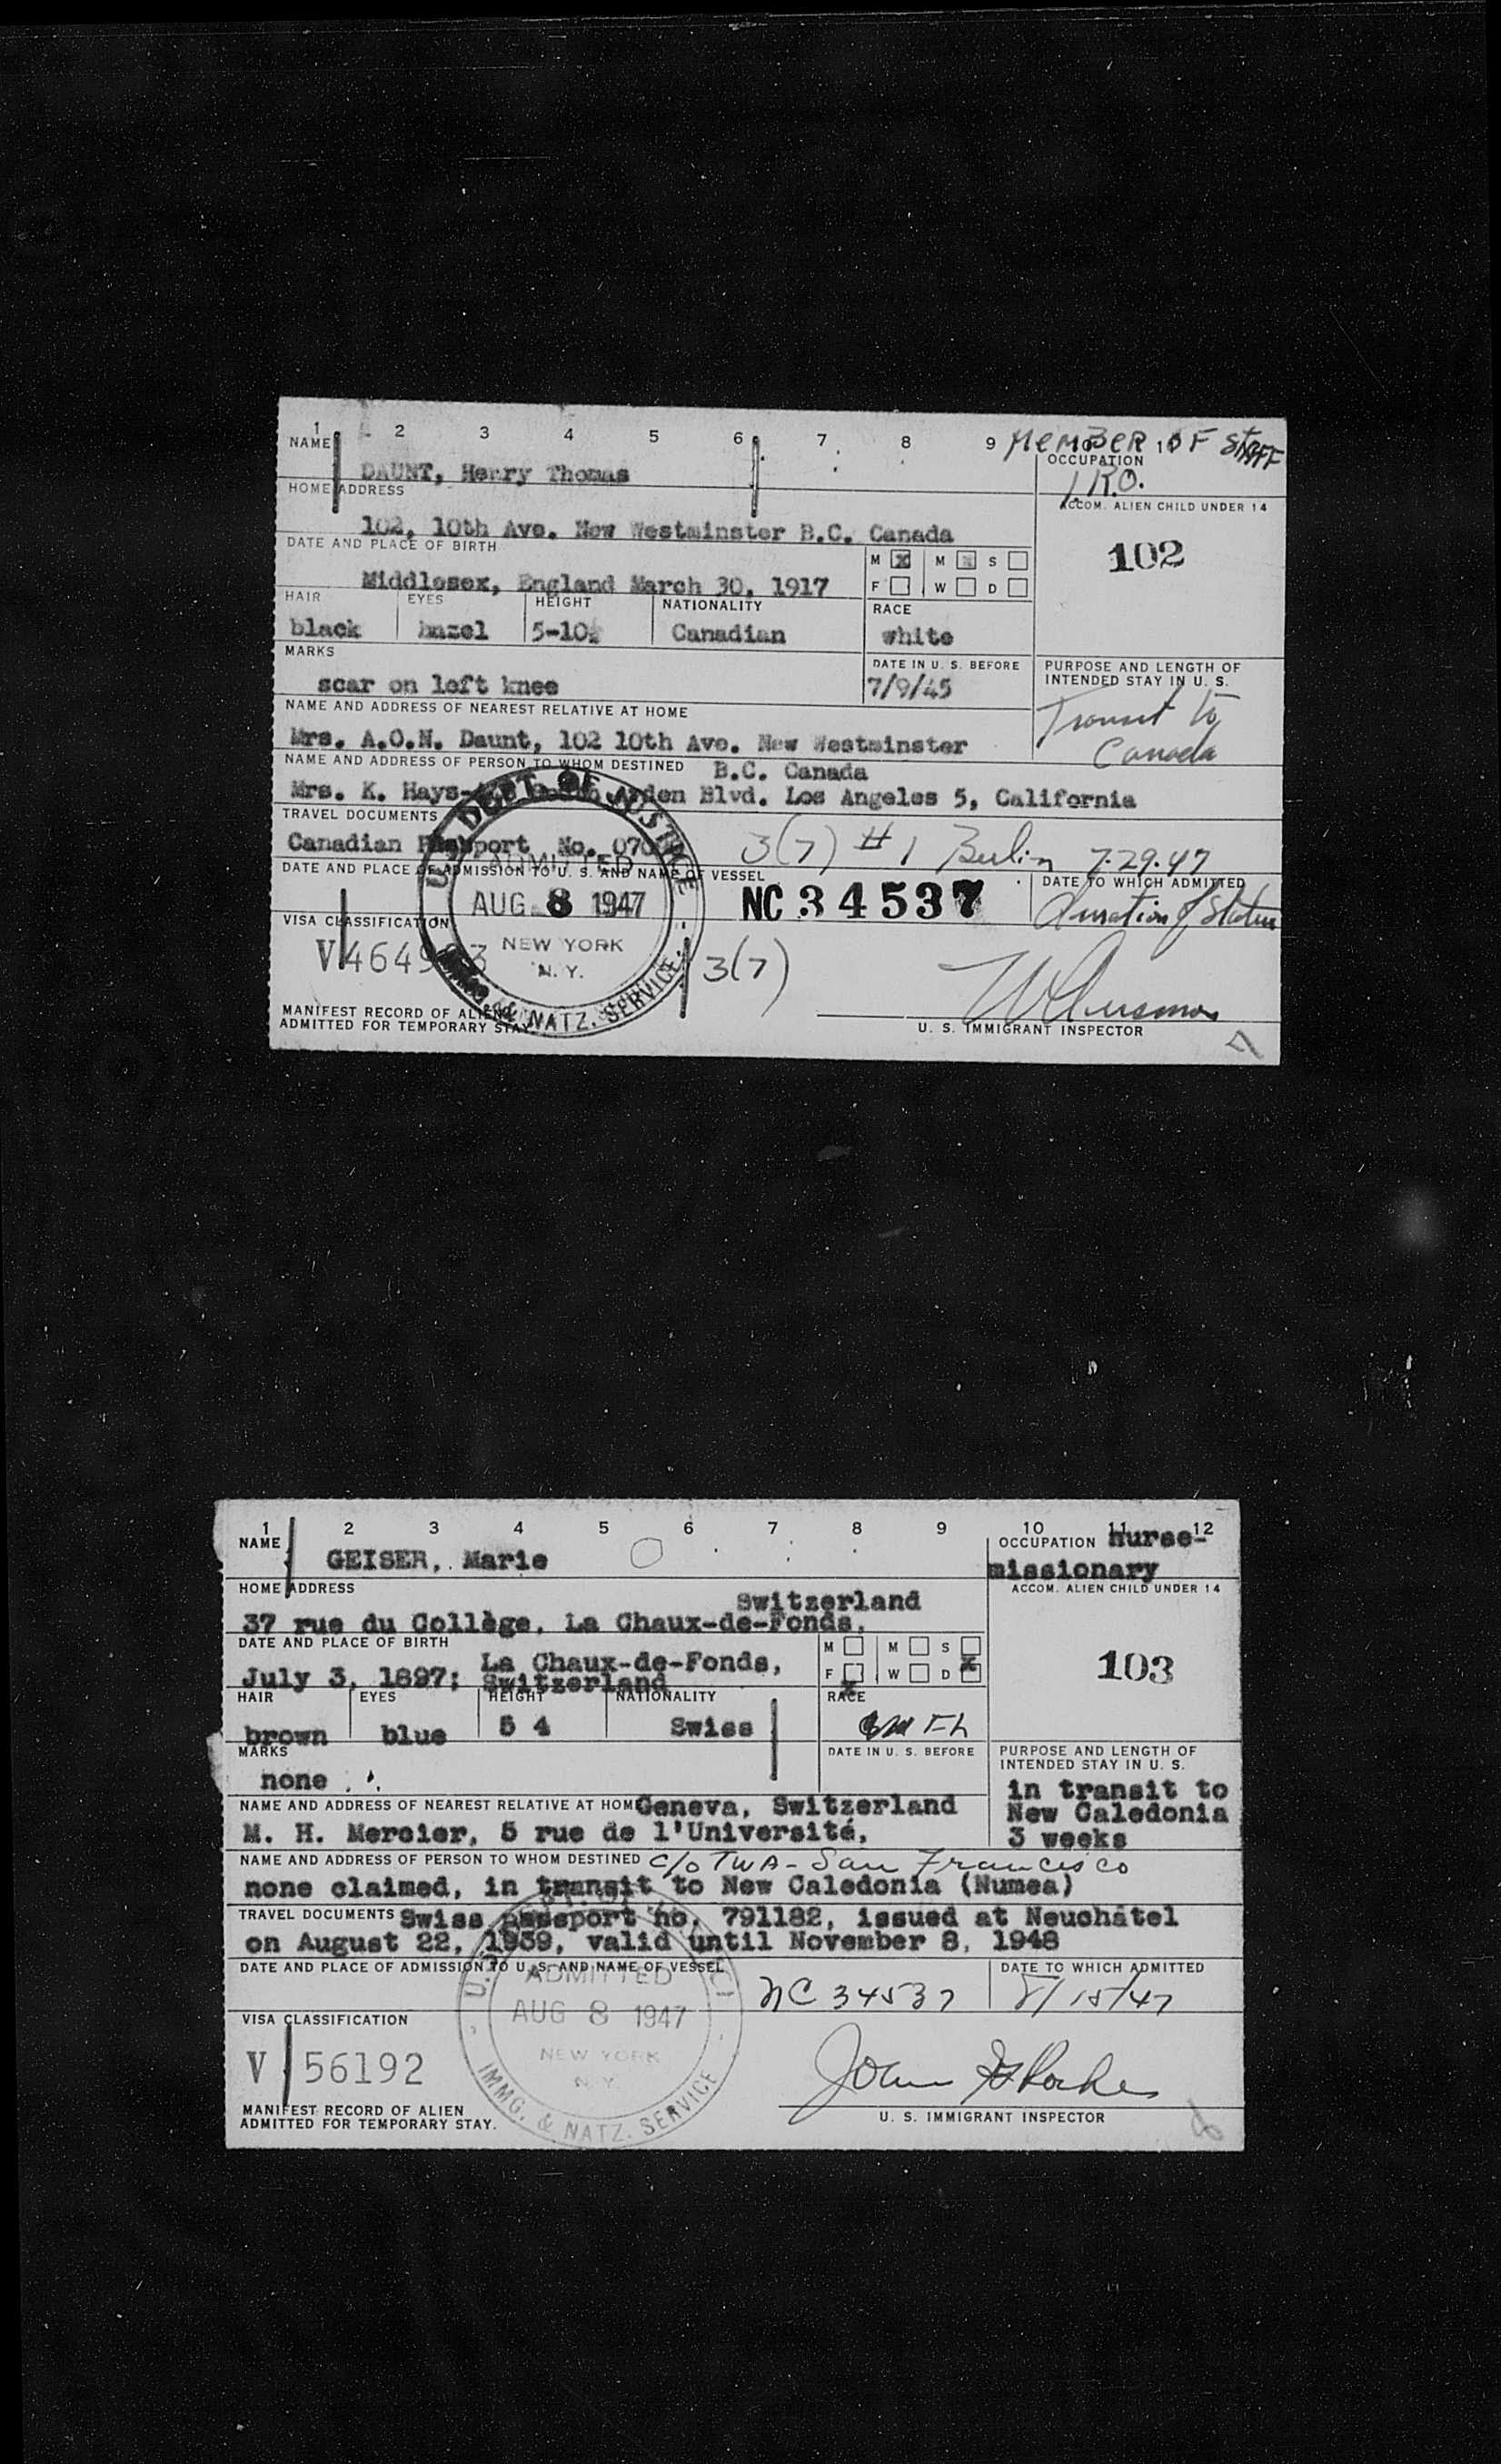 1 2 3 4 5 6 7 8 9
NAME
MEMBER OF STAFF
OCCUPATION
DAUNT, Henry Thomas
I.R.O.
HOME ADDRESS
ACCOM. ALIEN CHILD UNDER 14
102, 10th Ave. New Westminster B.C. Canada
102
DATE AND PLACE OF BIRTH
M X M X S
Middlesex, England March 30, 1917
F W D
HAIR EYES HEIGHT NATIONALITY RACE
black hazel 5-10½ Canadian white
MARKS
DATE IN U. S. BEFORE
PURPOSE AND LENGTH OF
INTENDED STAY IN U. S.
scar on left knee
7/9/45
Transit to
Canada
NAME AND ADDRESS OF NEAREST RELATIVE AT HOME
Mrs. A.O.N. Daunt, 102 10th Ave. New Westminster
B.C. Canada
NAME AND ADDRESS OF PERSON TO WHOM DESTINED
Mrs. K. Hays- Arden Blvd. Los Angeles 5, California
TRAVEL DOCUMENTS
Canadian Passport No. 070
3(7) #1 Berlin 7.29.47
DATE AND PLACE OF ADMISSION TO U. S. AND NAME OF VESSEL
DATE TO WHICH ADMITTED
U.S. DEPT. OF JUSTICE
ADMITTED
AUG 8 1947
NEW YORK
N. Y.
IMMG. & NATZ. SERVICE
NC 34537
duration of status
VISA CLASSIFICATION
V 464
3(7)
MANIFEST RECORD OF ALIEN
ADMITTED FOR TEMPORARY STAY
U. S. IMMIGRANT INSPECTOR
7
1 2 3 4 5 6 7 8 9 10 11 12
NAME
OCCUPATION nurse-
missionary
GEISER, Marie
HOME ADDRESS
ACCOM. ALIEN CHILD UNDER 14
Switzerland
37 rue du Collège, La Chaux-de-Fonds,
103
DATE AND PLACE OF BIRTH
M M S
F W D
La Chaux-de-Fonds,
July 3, 1897; Switzerland
X X
HAIR EYES HEIGHT NATIONALITY RACE
brown blue 5 4 Swiss
MARKS
DATE IN U. S. BEFORE
PURPOSE AND LENGTH OF
INTENDED STAY IN U. S.
none
in transit to
New Caledonia
3 weeks
NAME AND ADDRESS OF NEAREST RELATIVE AT HOME Geneva, Switzerland
M. H. Mercier, 5 rue de l'Université,
NAME AND ADDRESS OF PERSON TO WHOM DESTINED c/o TWA - San Francisco
none claimed, in transit to New Caledonia (Numea)
TRAVEL DOCUMENTS Swiss passport no. 791182, issued at Neuchâtel
on August 22, 1939, valid until November 8, 1948
DATE AND PLACE OF ADMISSION TO U. S. AND NAME OF VESSEL
DATE TO WHICH ADMITTED
ADMITTED
AUG 8 1947
NEW YORK
N. Y.
IMMG. & NATZ. SERVICE
NC 34537
8/15/47
VISA CLASSIFICATION
V 56192
MANIFEST RECORD OF ALIEN
ADMITTED FOR TEMPORARY STAY.
U. S. IMMIGRANT INSPECTOR